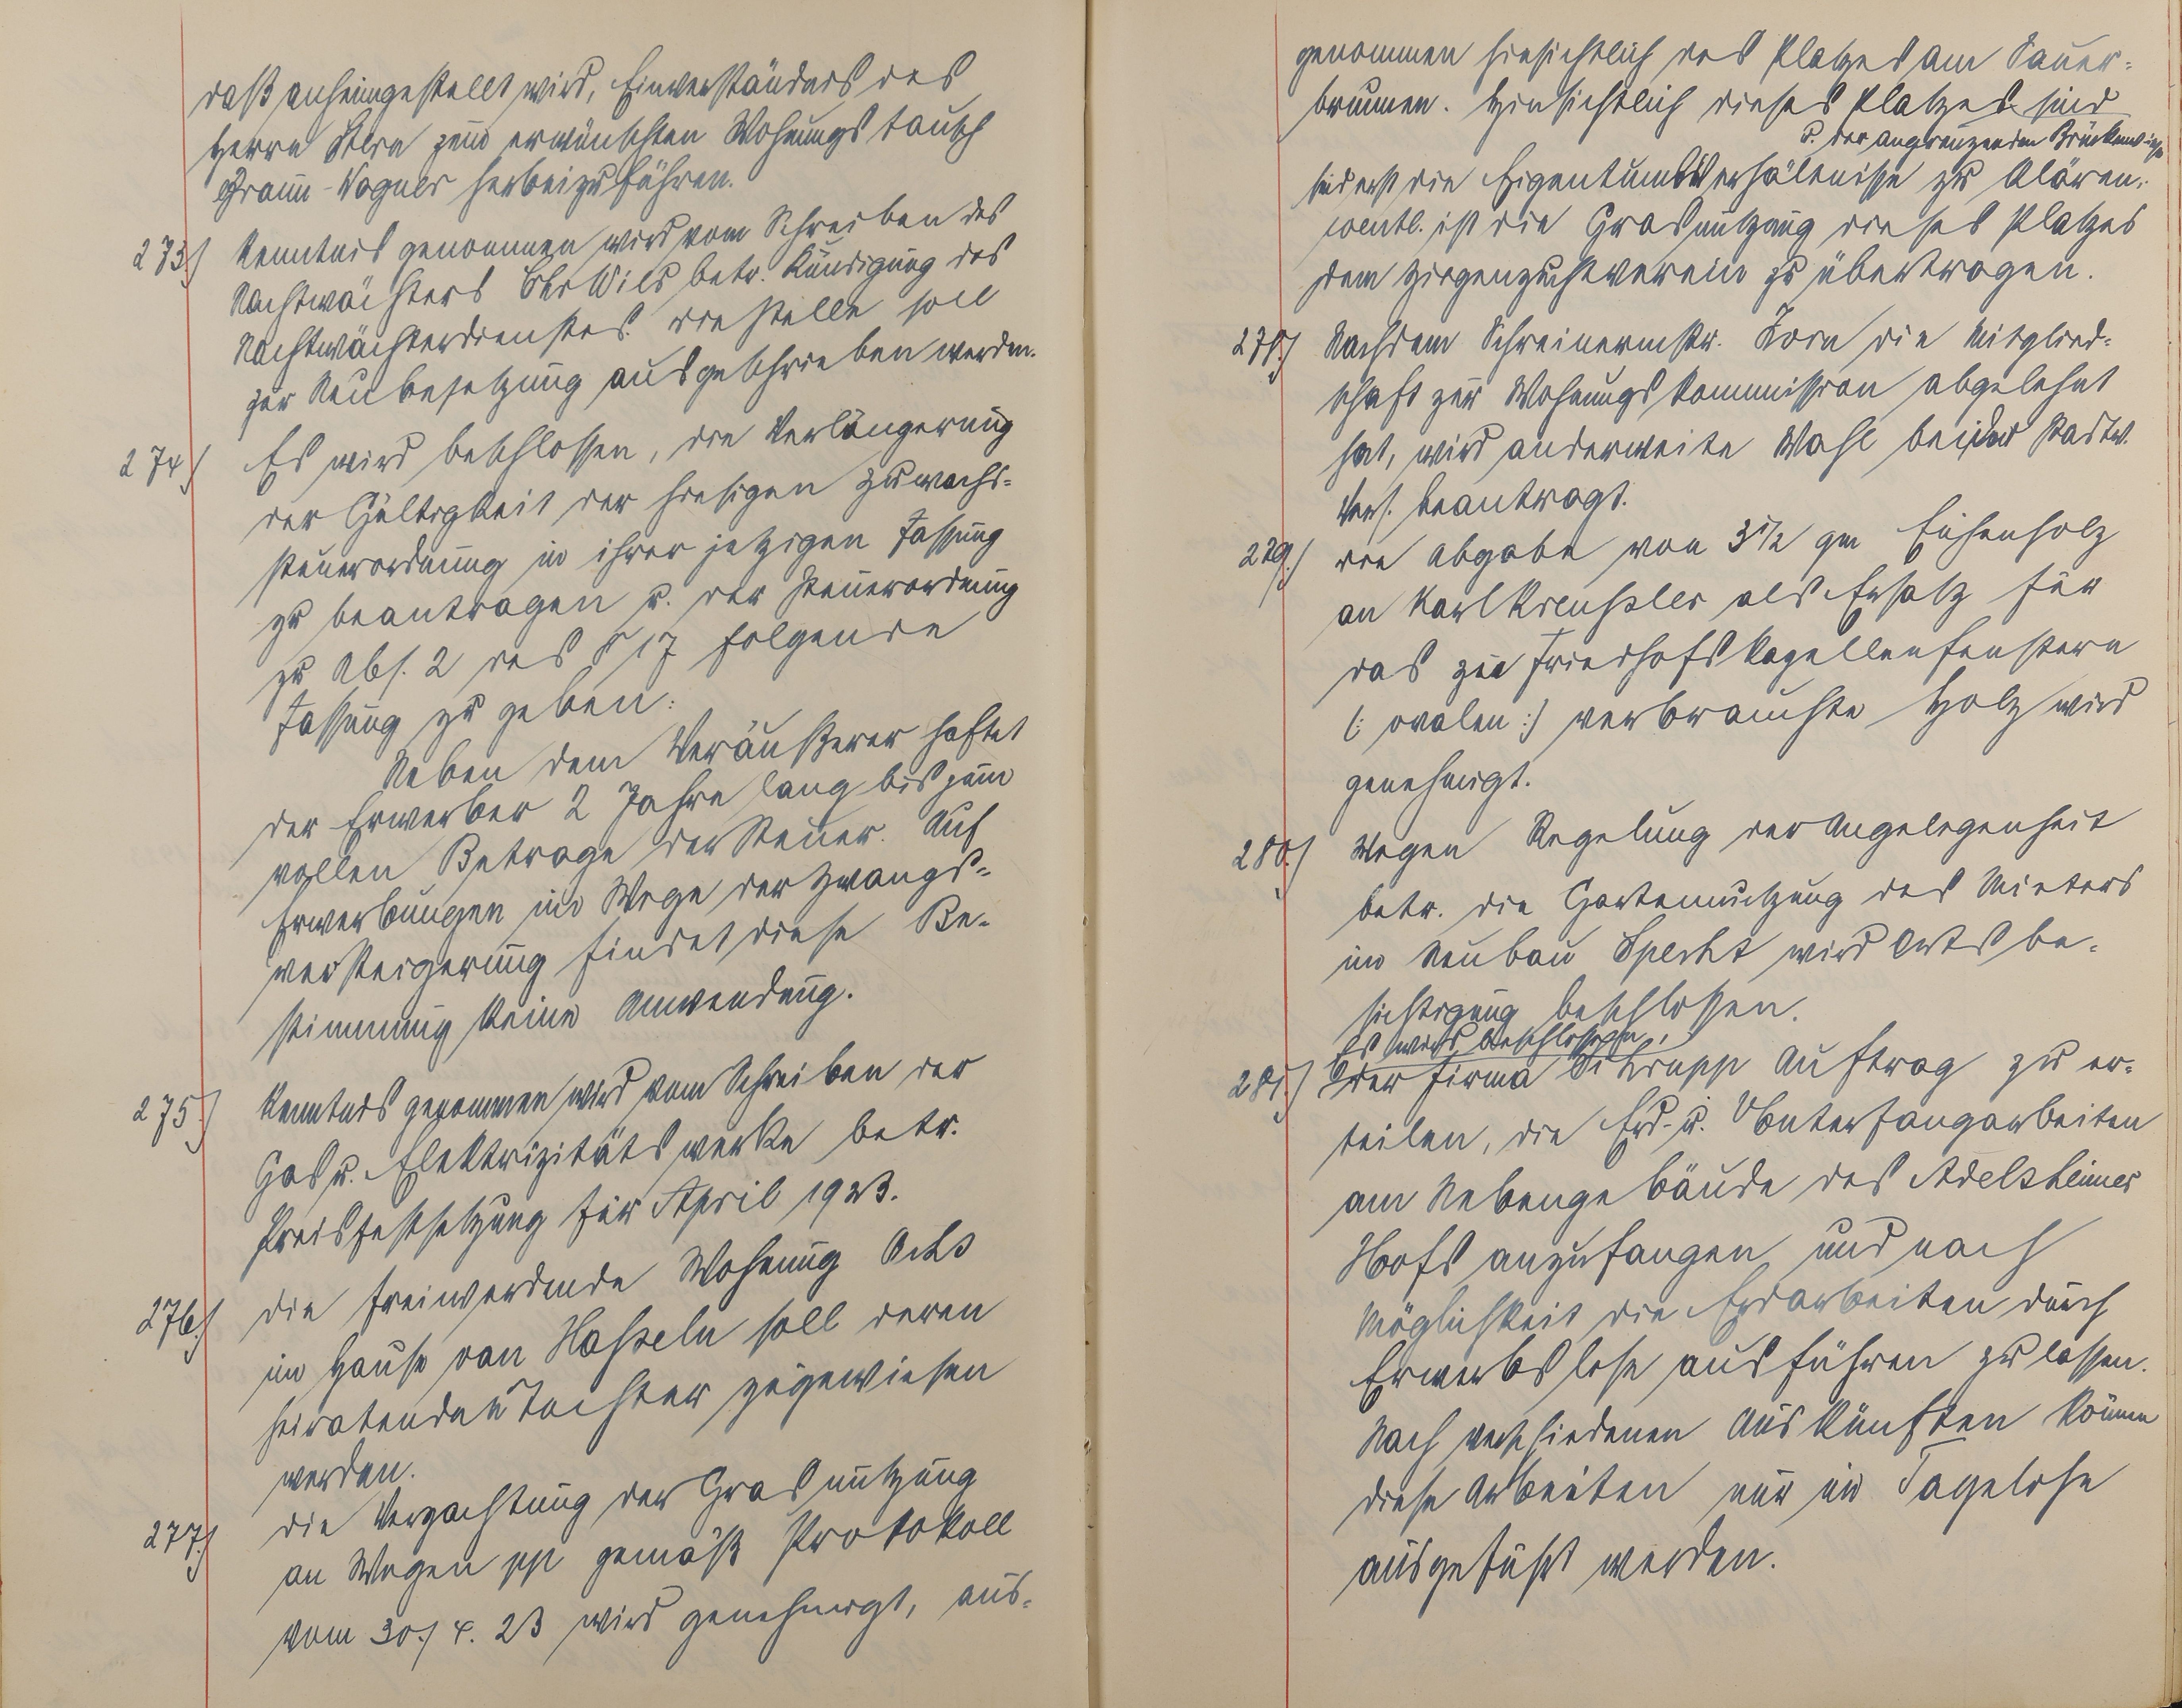 daß anheimgestellt wird, Einverständnis des
Herrn Stern zum erwünschten Wohnungstausch
Braun-Wagner herbeizuführen.
273.) Kenntnis genommen wird vom Schreiben des
Nachtwächters betr. Kündigung des
Nachtwächterdienstes. Die Stelle soll
zur Neubesetzung ausgeschrieben werden.
274.) Es wird beschlossen, die Verlängerung
der Gültigkeit der hiesigen Zuwachs-
steuerordnung in ihrer jetzigen Fassung
zu beantragen u. der Steuerordnung
zu Abs. 2 des § 17 folgende
Fassung zu geben:
Neben dem Veräußerer haftet
der Erwerber 2 Jahre lang bis zum
vollen Betrage der Steuer. Auf
Erwerbungen im Wege der Zwangs-
versteigerung findet diese Be-
stimmung keine Anwendung.
275.) Kenntnis genommen wird vom Schreiben der
Gas u. Elektrizitätswerke betr.
Preisfestsetzung für April 1923.
276.) Die freiwerdende Wohnung Ochs
im Hause von Hasseln soll deren
heiratenden Tochter zugewiesen
werden.
277.) Die Verpachtung der Grasnutzung
an Wegen pp gemäß Protokoll
vom 30./4. 23 wird genehmigt, aus-
genommen hinsichtlich des Platzes am Sauer-
brunnen. Hinsichtlich dieses Platzes sind
u. der angrenzenden Brückenwiese
sind erst die Eigentumsverhältnisse zu klären.
eventl. ist die Grasnutzung dieses Platzes
dem Ziegenzuchtverein zu übertragen.
278.) Nachdem Schreinermstr. Korn die Mitglied-
schaft zur Wohnungskommission abgelehnt
hat, wird anderweite Wahl bei der Stadtv.
Vers. beantragt.
279.) Die Abgabe von 3 1/2 qm Eichenholz
an Karl Kreußler als Ersatz für
das zu Friedhofskapellenfenstern
(: ovalen :) verbrauchte Holz wird
genehmigt.
280.) Wegen Regelung der Angelegenheit
betr. die Gartennutzung des Mieters
im Neubau Specht wird Ortsbe-
sichtigung beschlossen.
Es wird beschlossen,
281.) der Firma Krupp Auftrag zu er-
teilen, die Erd- u. Unterfangarbeiten
am Nebengebäude des Adelsheimer
Hofs anzufangen und nach
Möglichkeit die Erdarbeiten durch
Erwerbslose ausführen zu lassen.
Nach verschiedenen Auskünften können
diese Arbeiten nur im Tagelohe
ausgeführt werden.